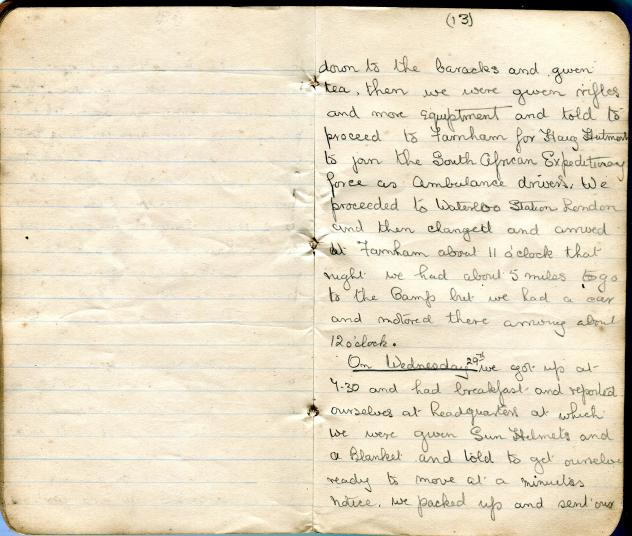 (13)
down to the baracks and given
tea, then we were given rifles
and more equiptment and told to
proceed to Farnham for Haig
to join the South African Expeditionary
force as Ambulance drivers. We
proceeded to Waterloo Station London
and then changed and arrived
at Farnham about 11 o'clock that
night we had about 5 miles to go
to the Camp but we had a car
and motored there arriving about
12 o'clock.
On Wednesday 29th we got up at
7-30 and had breakfast and reported
ourselves at headquarters at which
we were given Sun Helmets and
a Blanket and told to get ourselves
ready to move at a minutes
notice, we packed up and sent our